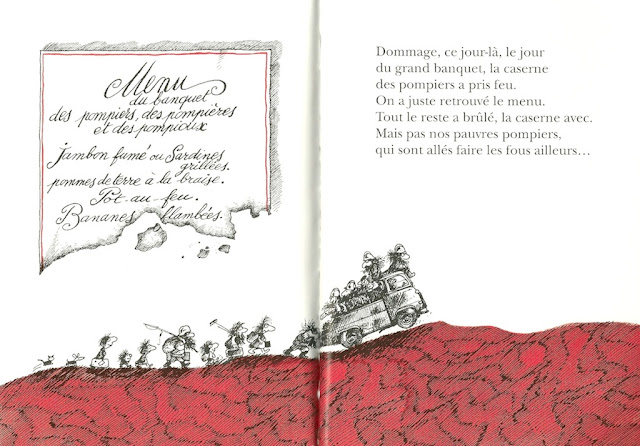 Menu
du banquet
des pompiers, des pompières
et des pompioux
Jambon fumé ou Sardines
grillées.
pommes de terre à la braise.
Pot-au-feu.
Bananes flambées.
Dommage, ce jour-là, le jour
du grand banquet, la caserne
des pompiers a pris feu.
On a juste retrouvé le menu.
Tout le reste a brûlé, la caserne avec.
Mais pas nos pauvres pompiers,
qui sont allés faire les fous ailleurs…